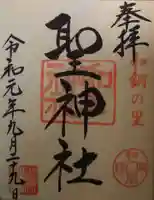 奉拝
和銅の里
聖神社
令和元年九月二十九日